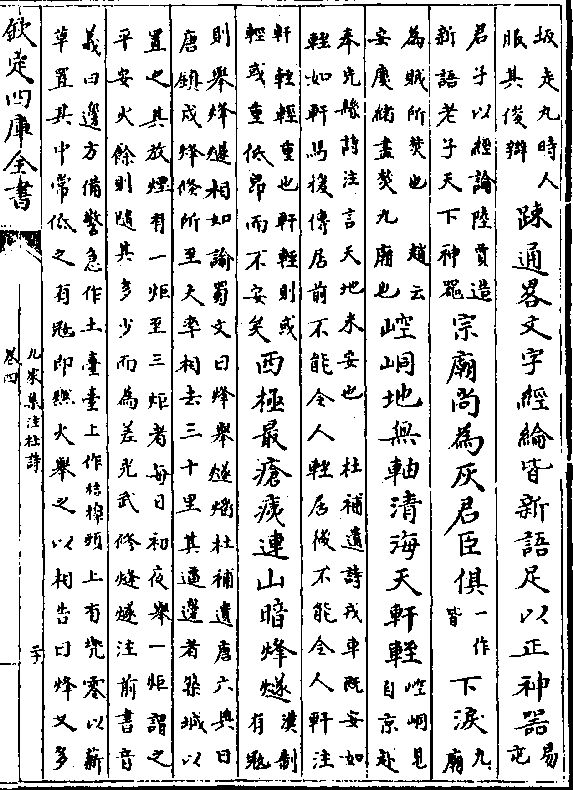 坂走九時人服其俊辯疎通畧文字經綸皆新語足以正神器易屯
君子以經論陸賈造新語老子天下神器宗廟尚為灰君臣俱一作皆下淚九廟
為賊所焚也 趙云安慶緒盡焚九廟也崆峒地無軸清海天軒輊崆峒見自京赴
奉先縣詩注言天地未安也 杜補遺詩戎車既安如輊如軒馬後傳居前不能令人輊居後不能令人軒注
軒輊輕重也軒輊則或輕或重低昂而不安矣西極最瘡痍連山暗烽燧漢制有寇
則舉烽燧相如論蜀文曰烽舉燧燔杜補遺唐六典曰唐鎮戍烽候所至大率相去三十里其逼邊者築城以
置之其放煙有一炬至三炬者每日初夜舉一炬謂之平安火餘則隨其多少而為差光武修烽燧注前書音
義曰邊方備警急作土臺臺上作桔槔頭上有兜零以薪草置其中常低之有寇即燃火舉之以相告曰烽又多
欽定四庫全書
九家集注杜詩
卷四